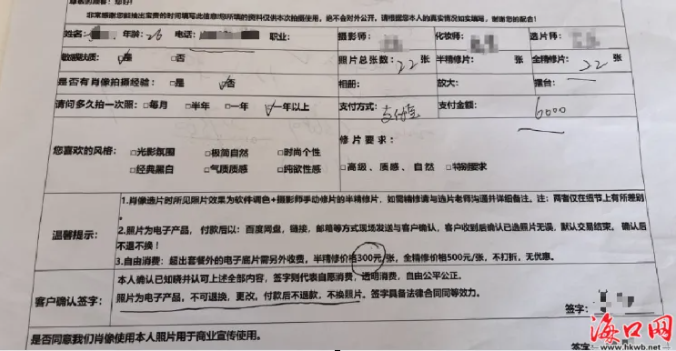 尊敬的顾客：您好！
非常感谢您能抽出宝贵的时间填写此信息!您所填的资料仅供本次拍摄使用，绝不会对外公开，请根据您本人的真实情况如实填写，谢谢您的配合！
姓名： 年龄：26 电话： 职业： 摄影师： 化妆师： 选片师：
敏感肤质： □是 □否 照片总张数：22 张 半精修片： 张 全精修片：22 张
是否有肖像拍摄经验： □是 □否 相册： 放大： 摆台：
请问多久拍一次照：□每月 □半年 □一年 □一年以上 支付方式：支付宝 支付金额：6000
您喜欢的风格： □光影氛围 □极简自然 □时尚个性
□经典黑白 □气质质感 □纯欲性感
修片要求：
□高级、质感、自然 □特别要求
温馨提示：
1.肖像选片时所见照片效果为软件调色+摄影师手动修片的半精修片，如需精修请与选片老师沟通并详细备注；注：两者仅在细节上有所差别。
2.照片为电子产品，付款后以：百度网盘，链接，邮箱等方式现场发送与客户确认，客户收到后确认已选照片无误，默认交易结束。确认后不退不换！
3.自由消费：超出套餐外的电子底片需另外收费，半精修价格300元/张，全精修价格500元/张，不打折，无优惠。
客户确认签字：
本人确认已知晓并认可上述全部内容，签字则代表自愿消费，透明消费，自由公平公正。
照片为电子产品，不可退换，更改，付款后不退款，不换照片，签字具备法律合同同等效力。
签字：
是否同意我们肖像使用本人照片用于商业宣传使用。
签字：
海口网
www.hkwb.net